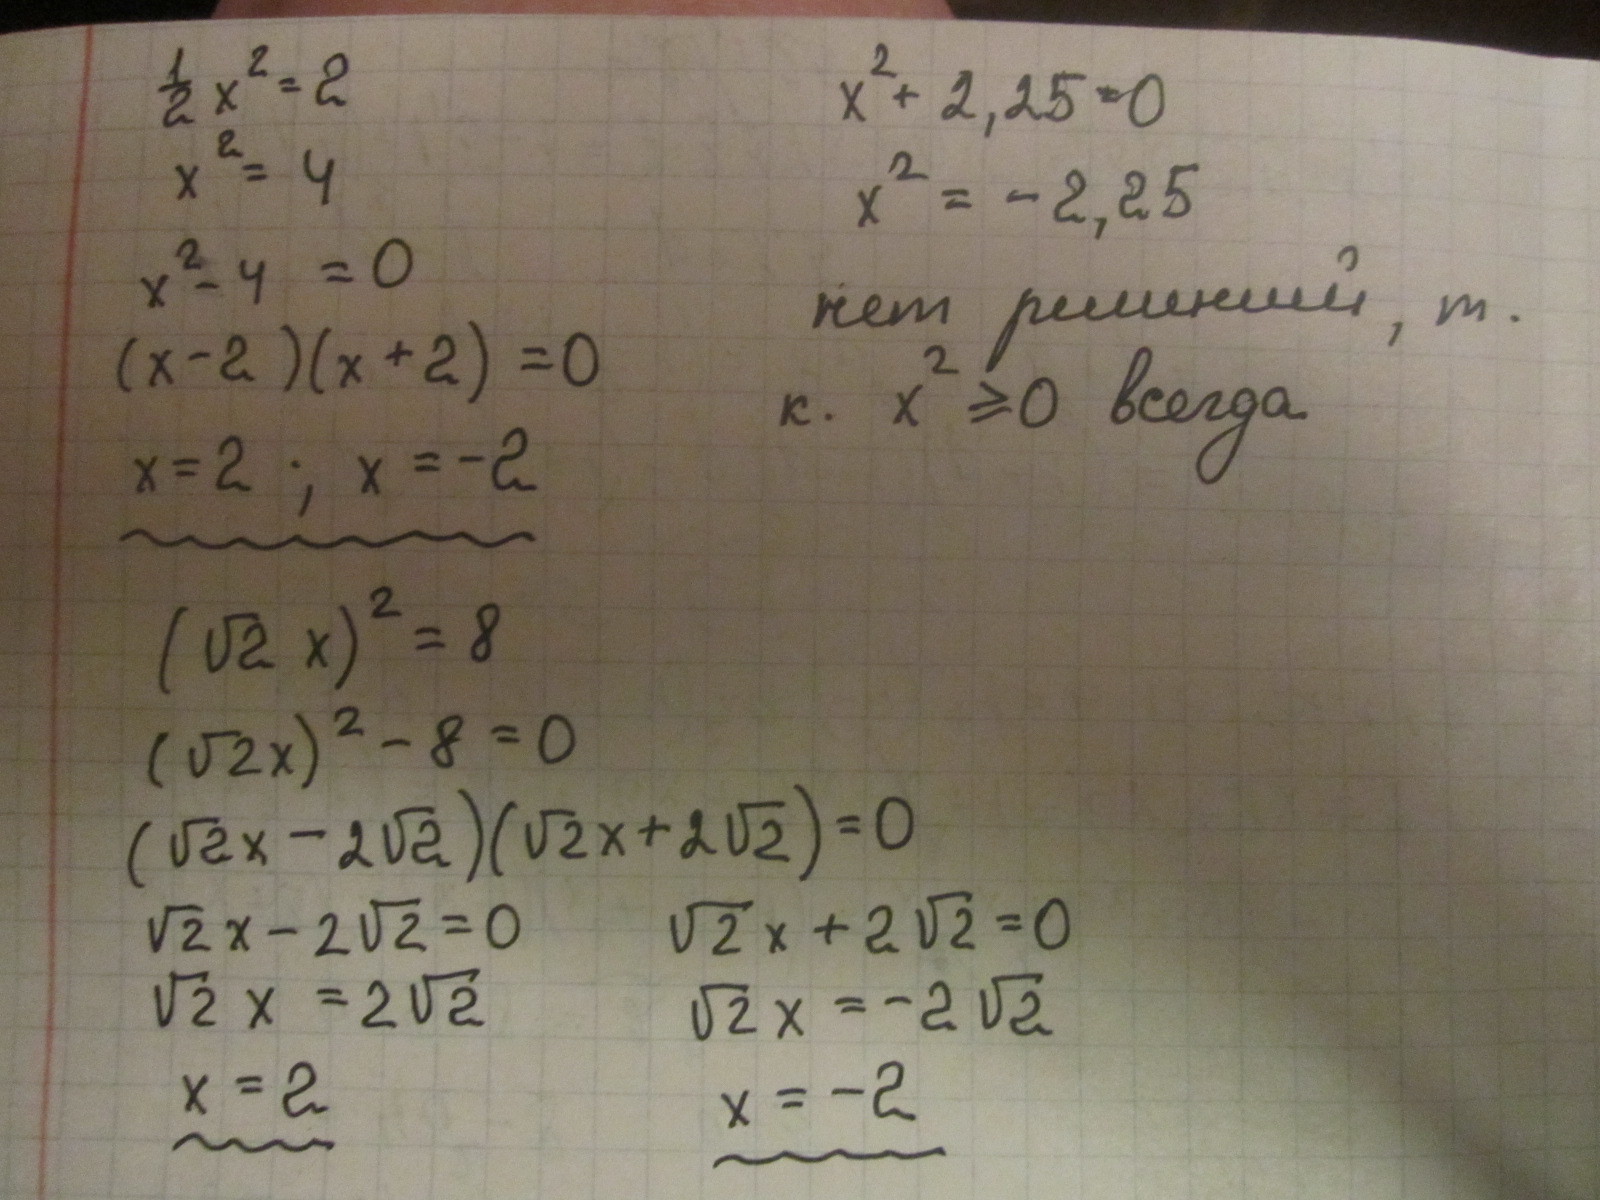 1/2 x² = 2
x² = 4
x² - 4 = 0
(x - 2)(x + 2) = 0
x = 2 ; x = -2
x² + 2,25 = 0
x² = -2,25
нет решений, т.
к. x² ⩾ 0 всегда
(√2 x)² = 8
(√2x)² - 8 = 0
(√2x - 2√2)(√2x + 2√2) = 0
√2x - 2√2 = 0
√2 x = 2√2
x = 2
√2 x + 2√2 = 0
√2 x = -2√2
x = -2